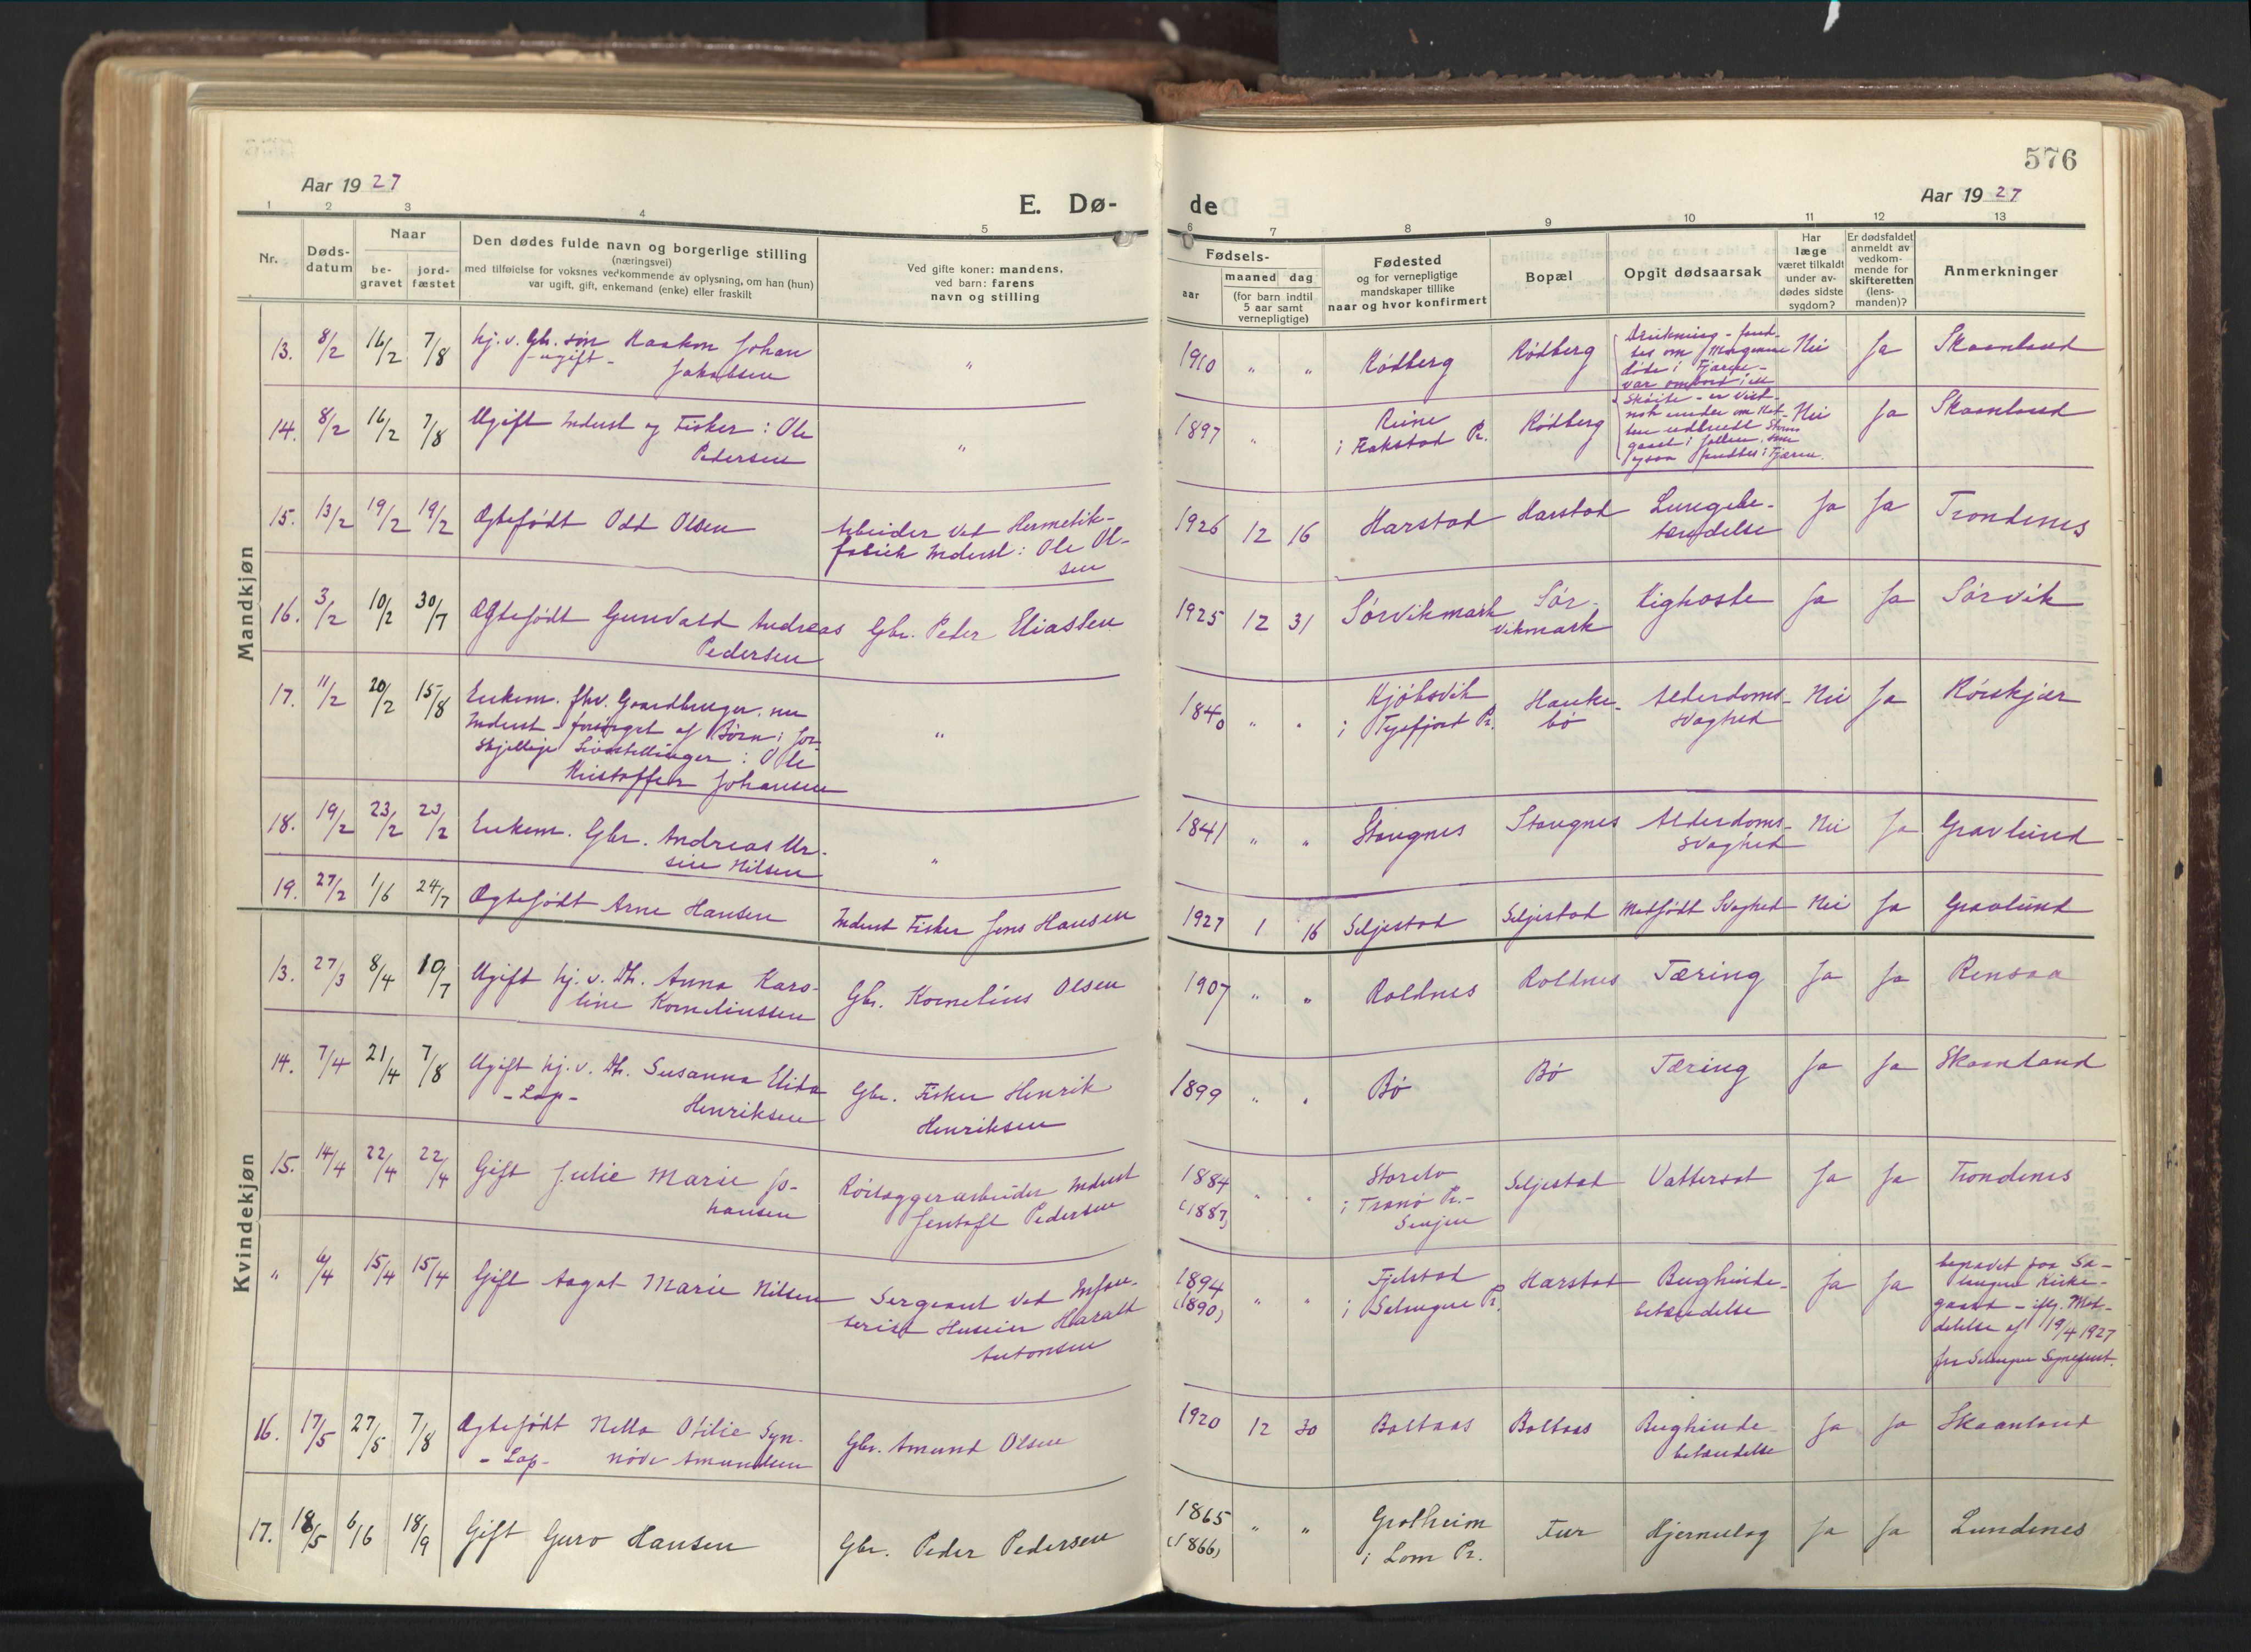 576
Aar 1927
Aar 1927
E. Dø-
de
1 2 3 4 5
6 7 8 9 10 11 12 13
Nr.
Døds-
datum
Naar
be-
gravet
jord-
fæstet
Den dødes fulde navn og borgerlige stilling
(næringsvei)
med tilføielse for voksnes vedkommende av oplysning, om han (hun)
var ugift, gift, enkemand (enke) eller fraskilt
Ved gifte koner: mandens,
ved barn: farens
navn og stilling
Fødsels-
aar
maaned dag
(for barn indtil
5 aar samt
vernepligtige)
Fødested
og for vernepligtige
mandskaper tillike
naar og hvor konfirmert
Bopæl
Opgit dødsaarsak
Har
læge
været tilkaldt
under av-
dødes sidste
sygdom?
Er dødsfaldet
anmeldt av
vedkom-
mende for
skifteretten
(lens-
manden)?
Anmerkninger
Mandkjøn
13. 8/2 16/2 7/8 hj. v. Gbr. søn Haakon Johan
- ugift - Jakobsen
" 1910 " " Rødberg Rødberg Drukning - fand-
tes om Morgenen
døde i Fjæren -
var ombord i en
Nei Ja Skaanland
14. 8/2 16/2 7/8 Ugift Inderst og Fisker: Ole
Pedersen
" 1897 " Reine
i Flakstad Pr. Rødberg Skøite - er vist-
nok under om Nat-
ten udbrudt Storm
gaaet i
ogsaa fandtes i Fjæren.
Nei Ja Skaanland
15. 13/2 19/2 19/2 Ægtefødt Odd Olsen
Arbeider ved Hermetik-
fabrik Inderst: Ole Ol-
sen
1926 12 16 Harstad Harstad Lungebe-
tændelse Ja Ja Trondenes
16. 3/2 10/2 30/7 Ægtefødt Gunvald Andreas
Pedersen
Gbr. Peder Eliassen
1925 12 31 Sørvikmark Sør-
vikmark Kighoste Ja Ja Sørvik
17. 11/2 20/2 15/8 Enkem. fhv. Gaardbruger, nu
Inderst - forsørget af Børn i for-
skjellige Livsstillinger: Ole
Kristoffer Johansen
" 1840 " " Kjøbsvik
i Tysfjord Pr. Hauke-
bø Alderdoms-
svaghed Nei Ja Røiskjær
18. 19/2 23/2 23/2 Enkem. Gbr. Andreas Ur-
sin Nilsen
" 1841 " " Stangnes Stangnes Alderdoms-
svaghed Nei Ja Gravlund
19. 27/2 1/6 24/7 Ægtefødt Arne Hansen
Inderst Fisker Jens Hansen
1927 1 16 Seljestad Seljestad Medfødt Svaghed Nei Ja Gravlund
Kvindekjøn
13. 27/3 8/4 10/7 Ugift hj. v. Dtr. Anna Karo-
line Korneliussen
Gbr. Kornelius Olsen
1907 " " Roldnes Roldnes Tæring Ja Ja Rensaa
14. 7/4 21/4 7/8 Ugift hj. v. Dtr. Susanna Elida
- Lap - Henriksen
Gbr. Fisker Henrik
Henriksen
1899 " " Bø Bø Tæring Ja Ja Skaanland
15. 14/4 22/4 22/4 Gift Julie Marie Jo-
hansen
Røilæggerarbeider Inderst
Jentoft Pedersen
1884
(1887)
" " Storelv
i Tranø Pr. -
Senjen
Seljestad Vattersot Ja Ja Trondenes
" 6/4 15/4 15/4 Gift Aagot Marie Nilsen
Sergeant ved Infan-
teriet Huseier Haralt
Antonsen
1894
(1890)
" " Fjelstad
i Salangen Pr. Harstad Bughinde-
betændelse Ja Ja begravet paa Sa-
langen Kirke-
gaard - iflg. Med-
delelse af 19/4 1927
fra Salangen Sogneprest.
16. 17/5 27/5 7/8 Ægtefødt Nella Otilie Syn-
- Lap - nøve Amundsen
Gbr. Amund Olsen
1920 12 30 Boltaas Boltaas Bughinde-
betændelse Ja Ja Skaanland
17. 18/5 6/16 18/9 Gift Guro Hansen
Gbr. Peder Pedersen
1865
(1866)
" " Grotheim
i Lom Pr. Fur Hjerneslag Ja Ja Lundenes